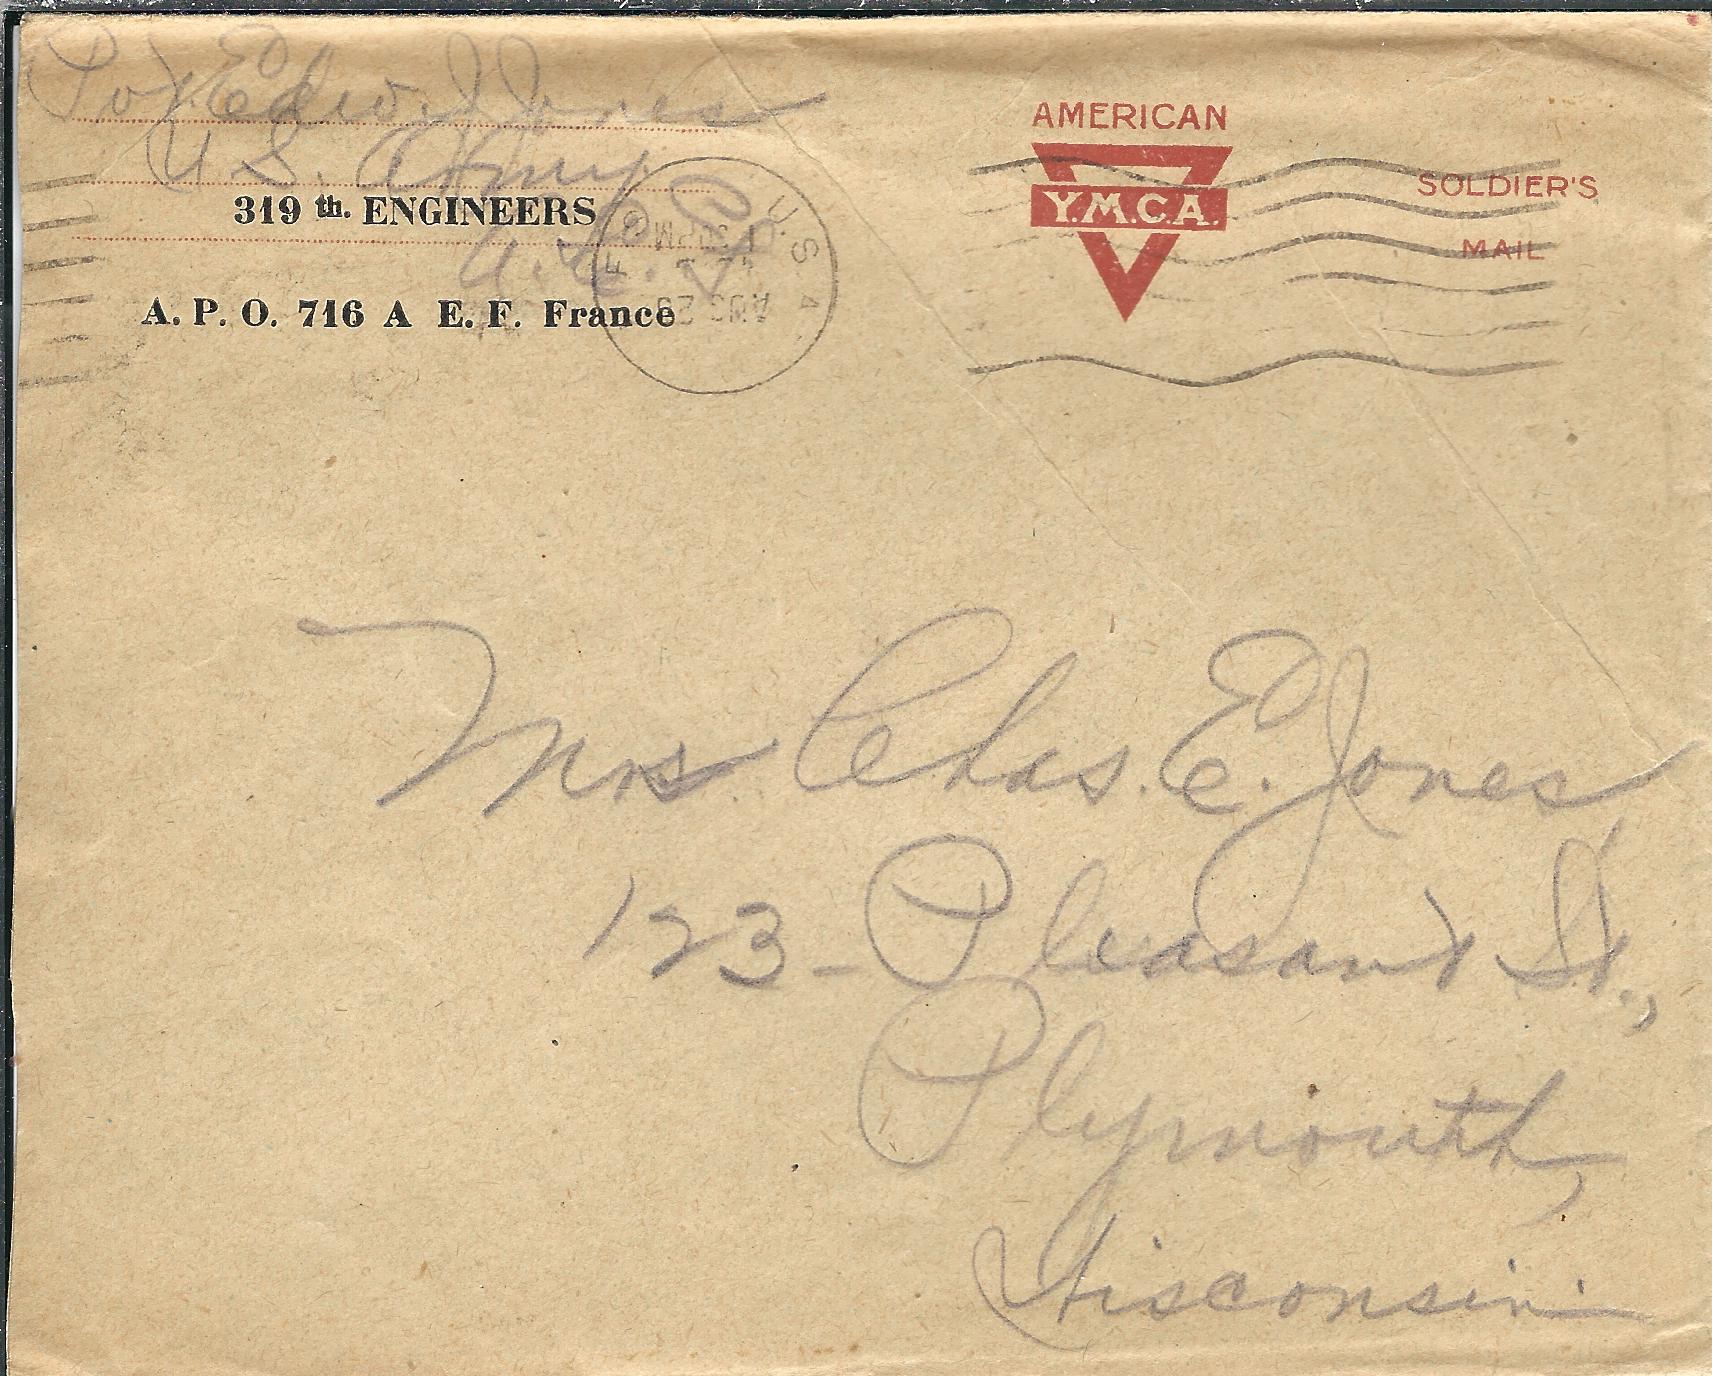 Pvt. Edw. J. Jones
U. S. Army
319 th. ENGINEERS
A. P. O. 716 A E. F. France
AMERICAN
Y.M.C.A.
SOLDIER'S
MAIL
U. S.
1 30 PM
AUG 29
Mrs. Chas. E. Jones,
123 - Pleasant St.,
Plymouth,
Wisconsin